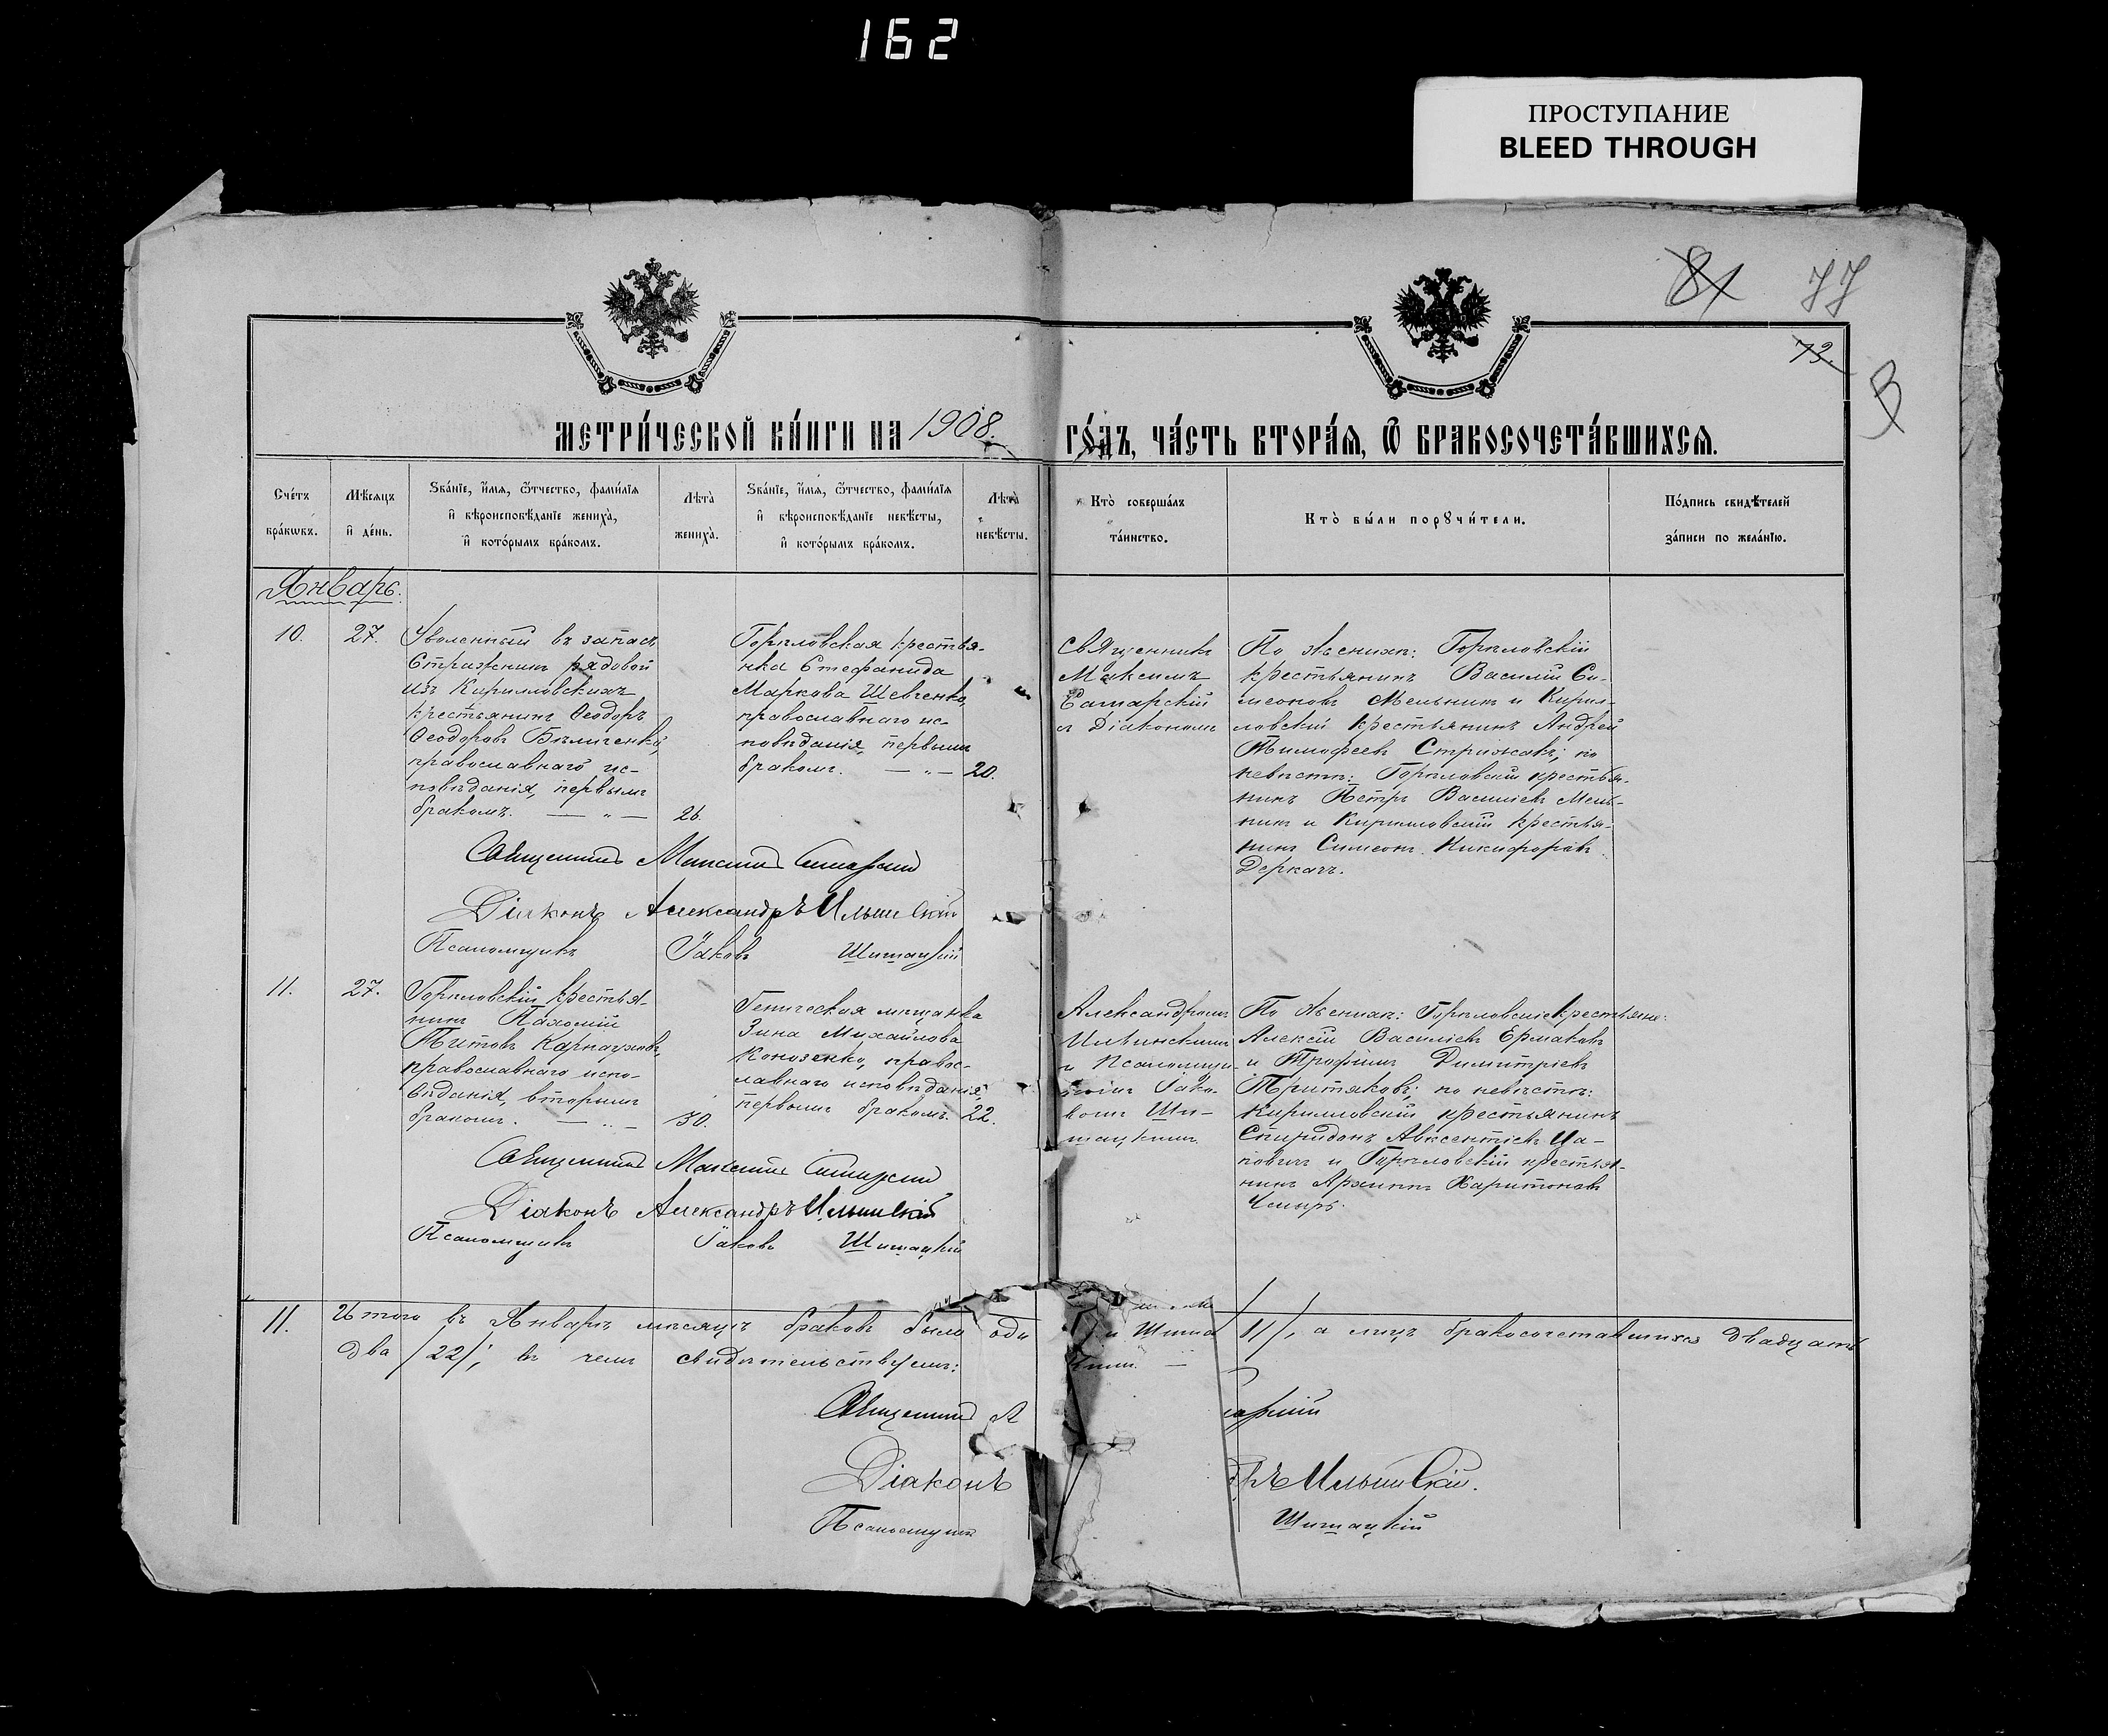 162
ПРОСТУПАНИЕ
BLEED THROUGH
81 77
73.
В
МЕТРИ́ЧЕСКОЙ КНИ́ГИ НА 1908. ГО́ДЪ, ЧА́СТЬ ВТОРА́Ѧ, Ѿ БРАКОСОЧЕТА́ВШИХСѦ.
Сче́тъ бра́кѡвъ.
Мѣ́сяцъ и҆ де́нь.
Зва́нїе, и҆́мѧ, ѻ҆́тчество, фами́лїѧ
и҆ вѣроисповѣ́данїе жениха̀,
и҆ кото́рымъ бра́комъ.
Лѣта̀ жениха̀.
Зва́нїе, и҆́мѧ, ѻ҆́тчество, фами́лїѧ
и҆ вѣроисповѣ́данїе невѣ́сты,
и҆ кото́рымъ бра́комъ.
Лѣта̀ невѣ́сты.
Кто̀ соверша́лъ та́инство.
Кто̀ бы́ли порꙋчи́тели.
По́дпись свидѣ́телей за́писи по жела́нїю.
Январь.
10. 27.
Уволенный въ запасъ
Стражникъ рядовой
изъ Кирилловскихъ
крестьянинъ Ѳеодоръ
Ѳеодоровъ Бѣличенко,
православнаго ис-
повѣданія, первымъ
бракомъ. — „ — 26.
Горѣловская крестья-
нка Стефанида
Маркова Шевченко,
православнаго ис-
повѣданія, первымъ
бракомъ. — „ — 20.
Священникъ
Максимъ
Ситарскій
съ Діакономъ
По женихѣ: Горѣловскій
крестьянинъ Василій Си-
меоновъ Мельникъ и Кирил-
ловскій крестьянинъ Андрей
Тимофеевъ Стрижакъ; по
невѣстѣ: Горѣловскій крестья-
нинъ Петръ Василіевъ Мель-
никъ и Кирилловскій крестья-
нинъ Симеонъ Никифоровъ
Деркачъ.
Священникъ Максимъ Ситарскій
Діаконъ Александръ Ильинскій
Псаломщикъ Іаковъ Шишацкій
11. 27.
Горѣловскій крестья-
нинъ Пахомій
Титовъ Карнауховъ,
православнаго испо-
вѣданія, вторымъ
бракомъ. — „ — 30.
Геническая мѣщанка
Зина Михайлова
Конозенко, правос-
лавнаго исповѣданія,
первымъ бракомъ. 22.
Александромъ
Ильинскимъ
и Псаломщи-
комъ Іако-
вомъ Ши-
шацкимъ.
По женихѣ: Горѣловскіе крестьяне:
Алексій Василіевъ Ермаковъ
и Трофимъ Димитріевъ
Притяковъ; по невѣстѣ:
Кирилловскій крестьянинъ
Спиридонъ Авксентіевъ Ца-
повичъ и Горѣловскій крестья-
нинъ Архипъ Харитоновъ
Чмырь.
Священникъ Максимъ Ситарскій
Діаконъ Александръ Ильинскій
Псаломщикъ Іаковъ Шишацкій
11. Итого въ Январѣ мѣсяцѣ браковъ было оди /11/, а лицъ бракосочетавшихся двадцать
два /22/; въ чемъ свидѣтельствуемъ:
Священникъ М арскій
Діаконъ дръ Ильинскій.
Псаломщикъ Шишацкій